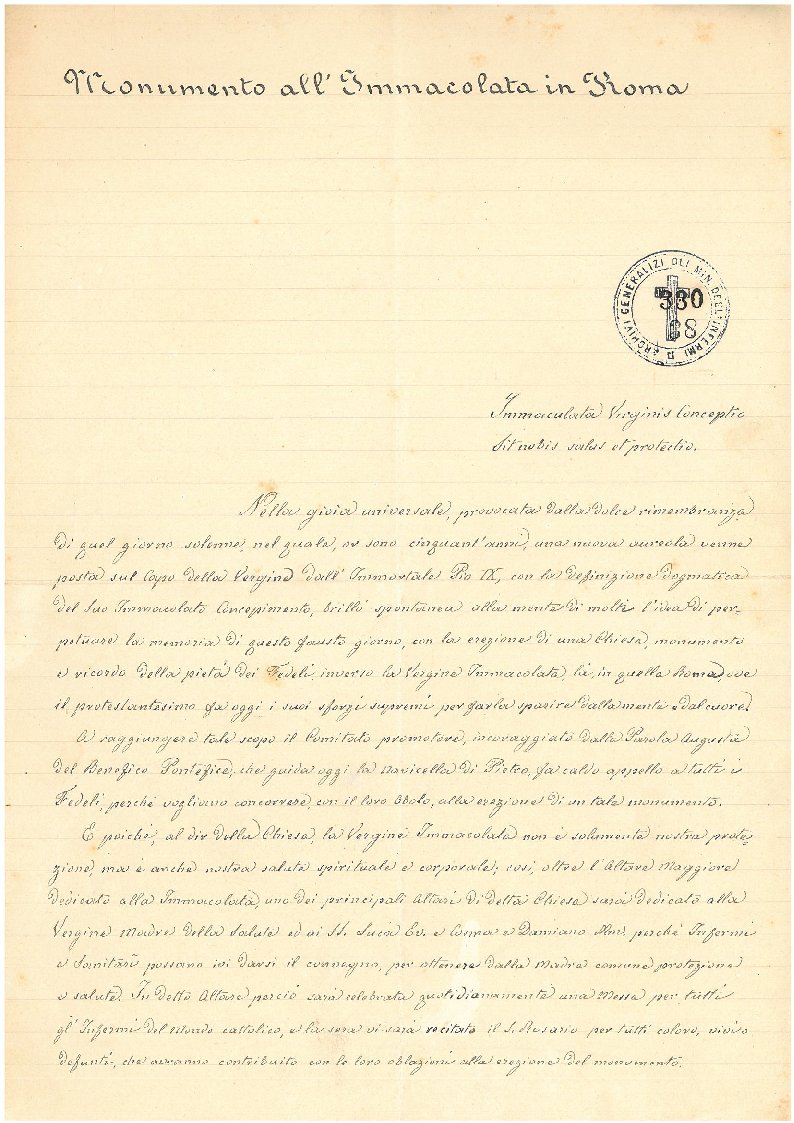 Monumento all'Immacolata in Roma
ARCHIVI GENERALIZI DLI MIN. DEGL'INFERMI
330
68
Immaculata Virginis Conceptio
Sit nobis salus et protectio.
Nella gioia universale, provocata dalla dolce rimembranza
di quel giorno solenne, nel quale, or sono cinquant'anni, una nuova aureola venne
posta sul Capo della Vergine dall'Immortale Pio IX, con la definizione dogmatica
del Suo Immacolato Concepimento, brillò spontanea alla mente di molti l'idea di per-
petuare la memoria di questo fausto giorno, con la erezione di una Chiesa, monumento
e ricordo della pietà dei Fedeli inverso la Vergine Immacolata, là, in quella Roma, ove
il protestantesimo fa oggi i suoi sforzi supremi per farla sparire dalla mente e dal cuore.
A raggiungere tale scopo il Comitato promotore, incoraggiato dalla Parola Augusta
del Benefico Pontefice, che guida oggi la navicella di Pietro, fa caldo appello a tutti i
Fedeli, perché vogliano concorrere, con il loro Obolo, alla erezione di un tale monumento.
E poiché, al dir della Chiesa, la Vergine Immacolata non è solamente nostra prote-
zione, ma è anche nostra salute spirituale e corporale; così, oltre l'Altare Maggiore
dedicato alla Immacolata, uno dei principali Altari di detta Chiesa sarà dedicato alla
Vergine Madre della Salute ed ai SS. Luca Ev. e Cosma e Damiano Mm. perché Infermi
e Sanitarî possano ivi darsi il convegno, per ottenere dalla Madre comune protezione
e salute. In detto Altare perciò sarà celebrata quotidianamente una Messa per tutti
gl'Infermi del Mondo cattolico, e la sera vi sarà recitato il S. Rosario per tutti coloro, vivi o
defunti, che avranno contribuito con le loro oblazioni alla erezione del monumento.